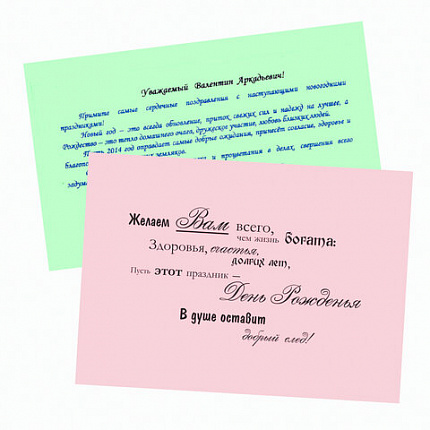 Уважаемый Валентин Аркадьевич!
Примите самые сердечные поздравления с наступающими новогодними
праздниками!
Новый год – это всегда обновление, приток свежих сил и надежд на лучшее, а
Рождество – это тепло домашнего очага, дружеское участие, любовь близких людей.
2014 год оправдает самые добрые ожидания, принесёт согласие, здоровье и
земляков.
и процветания в делах, свершения всего
Желаем Вам всего,
чем жизнь богата:
Здоровья, счастья,
долгих лет,
Пусть этот праздник –
День Рожденья
В душе оставит
добрый след!